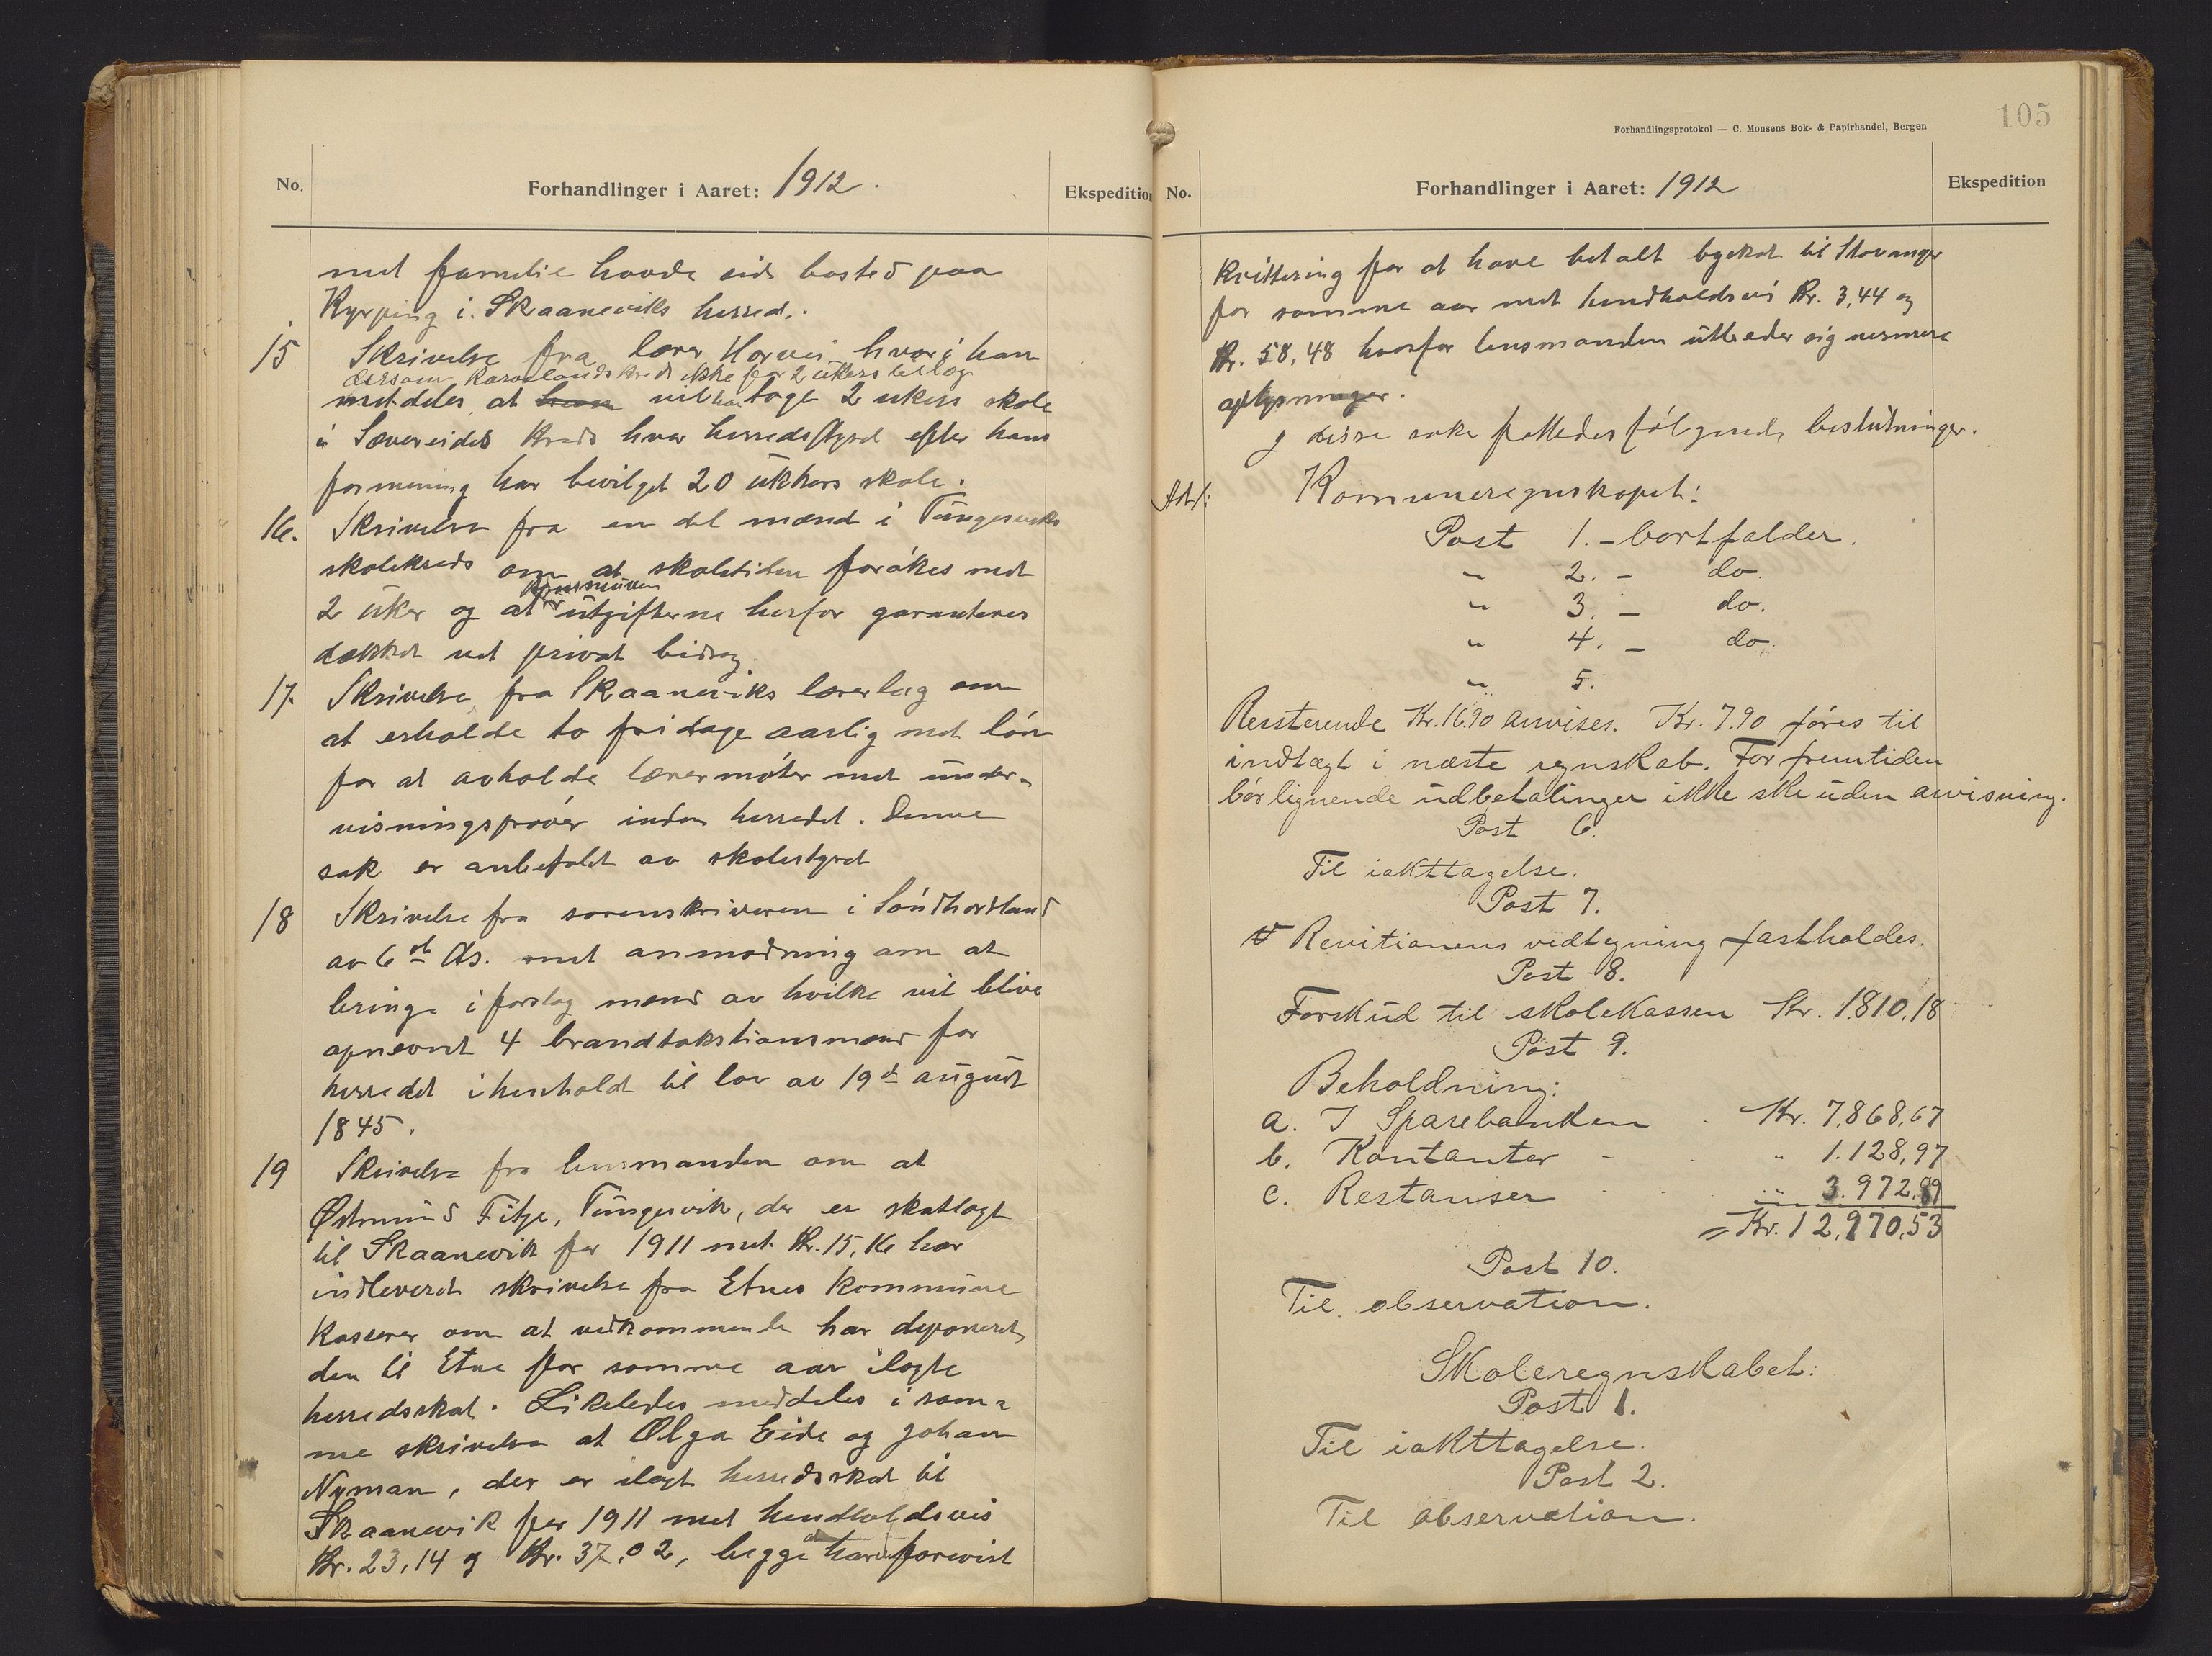 No.
Forhandlinger i Aaret: 1912.
Ekspedition
met familie havde sid bosted paa
Kyrping i Skaaneviks herred.
15 Skrivelse fra lærer Horvei hvori han
dersom kredsikke faar 2 ukers tillæg
meddeles, at han vil han tage 2 ukers skole
i Sævereides kreds hvor herredsstyret efter hans
formening har bevilget 20 ukkers skole.
16. Skrivelse fra en del mænd i Tungesviks
skolekreds om at skoletiden forøkes met
kommunen
2 uker og at utgifterne herfor garanteres
dækket ved privat bidrag.
17. Skrivelse fra Skaaneviks lærerlag om
at erholde to fridage aarlig met løn
for at avholde lærermøter met under-
visningsprøver inden herredet. Denne
sak er anbefalet av skolestyret
18 Skrivelse fra sorenskriveren i Søndhordland
av 6te ds. met anmodning om at
bringe i forslag mænd av hvilke vil blive
opnævnt 4 brandtakstionsmænd for
herredet i henhold til lov av 19de august
1845.
19 Skrivelse fra lensmanden om at
Østmund Fitje, Tungesvik, der er skatlagt
til Skaanevik for 1911 met Kr. 15,16 har
indleveret skrivelse fra Etnes kommune
kasserer om at vedkommende har deponeret
den til Etne for samme aar ilagte
herredsskat. Likeledes meddeles i sam-
me skrivelse at Olga Eide og Johan
Nyman, der er ilagt herredsskat til
Skaanevik for 1911 met henholdsvis
Kr. 23,14 og Kr. 37,02, begge har forevist
105
Forhandlingsprotokol — C. Monsens Bok- & Papirhandel, Bergen
No.
Forhandlinger i Aaret: 1912
Ekspedition
kvittering for at have betalt byskat til Stavanger
for samme aar met henholdsvis Kr. 3,44 og
Kr. 58,48 hvorfor lensmanden utbeder sig nermere
oplysninger.
I disse saker fattedes følgende beslutninger.
Ad 1: Kommuneregnskapet:
Post 1. - bortfalder.
" 2. - do.
" 3. - do.
" 4. - do.
" 5.
Ressterende Kr. 16.90 anvises. Kr. 7.90 føres til
indtægt i næste regnskab. For fremtiden
bør lignende udbetalinger ikke ske uden anvisning.
Post 6.
Til iakttagelse.
Post 7.
Revitionens vedtegning fastholdes.
Post 8.
Forskud til skolekassen Kr. 1810,18
Post 9.
Beholdning:
a. I Sparebanken Kr. 7,868,67
b. Kontanter " 1.128,97
c. Restanser " 3.972,89
= Kr. 12,970,53
Post 10.
Til observation.
Skoleregnskabet:
Post 1.
Til iakttagelse.
Post 2.
Til observation.